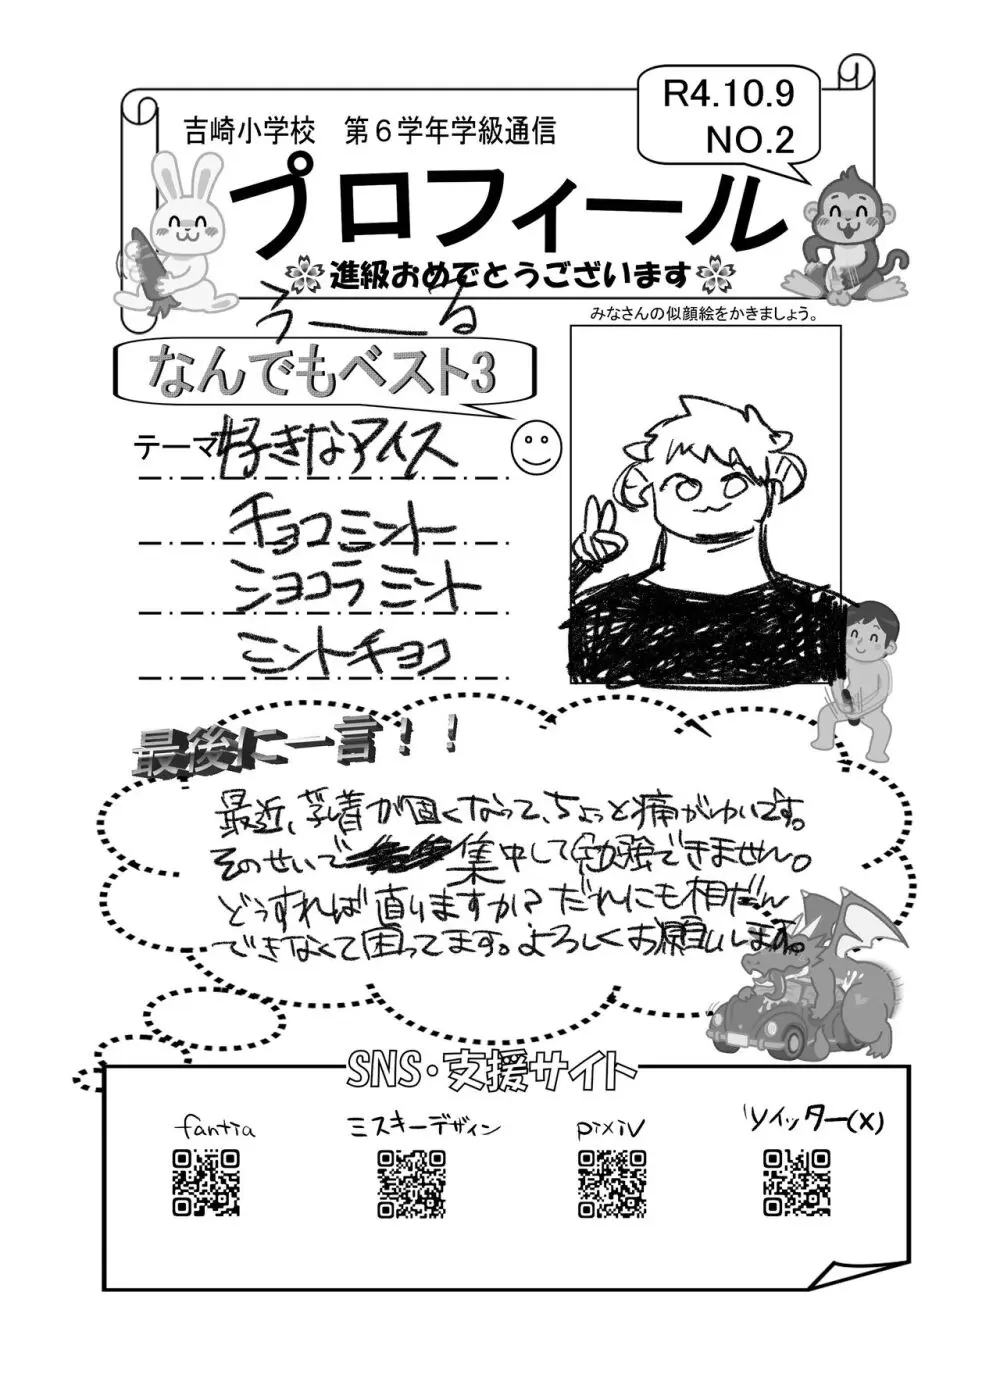 R4.10.9
NO.2
吉崎小学校　第６学年学級通信
プロフィール
進級おめでとうございます
うーる
みなさんの似顔絵をかきましょう。
なんでもベスト3
テーマ 好きなアイス
チョコミント
ショコラミント
ミントチョコ
最後に一言！！
最近、乳着が固くなって、ちょっと痛がゆいです。
そのせいで集中して勉強できません。
どうすれば直りますか？だれにも相だん
できなくて困ってます。よろしくお願いします。
SNS・支援サイト
fantia
ミスキーデザイン
pixiv
ツイッター(X)